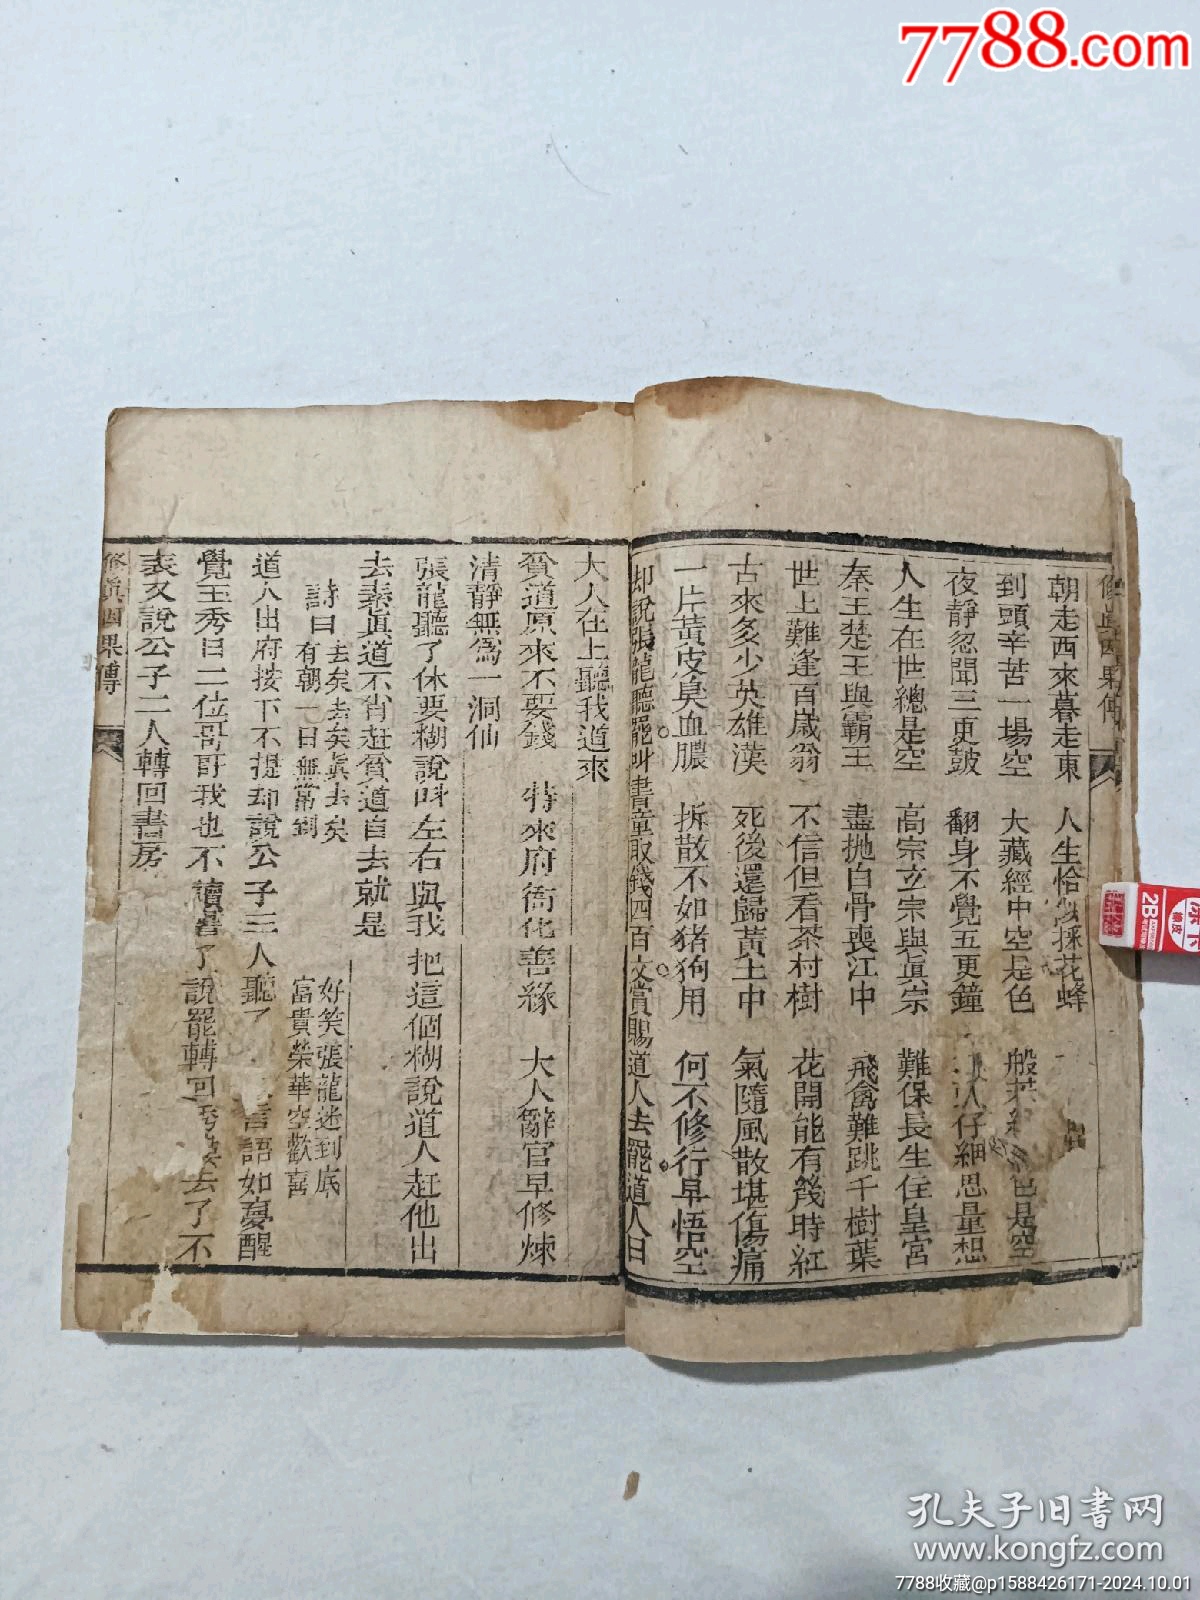 7788.com
修眞因果傳
朝走西來暮走東 人生恰似採花蜂
到頭辛苦一場空 大藏經中空是色 般若經 色是空
夜靜忽聞三更鼓 翻身不覺五更鐘 仔細思量想
人生在世總是空 高宗玄宗與眞宗 難保長生住皇宮
秦王楚王與霸王 盡拋白骨喪江中 飛禽難跳千樹葉
世上難逢百歲翁 不信但看茶村樹 花開能有幾時紅
古來多少英雄漢 死後還歸黃土中 氣隨風散堪傷痛
一片黃皮臭血膿 拆散不如猪狗用 何不修行早悟空
却說張龍聽罷叫書童取錢四百文賞賜道人去罷道人曰
大人在上聽我道來
貧道原來不要錢 特來府衙化善緣 大人辭官早修煉
清靜無爲一洞仙
張龍聽了休要糊說叫左右與我把這個糊說道人赶他出
去素眞道不肖赶貧道自去就是
詩曰 去矣去矣眞去矣 好笑張龍迷到底
有朝一日無常到 富貴榮華空歡喜
道人出府按下不提却說公子三人聽了 言語如夢醒
覺玉秀目二位哥哥我也不讀書了說罷轉回 去了不
表又說公子二人轉回書房
修眞因果傳
2B
橡皮
孔夫子旧书网
www.kongfz.com
7788收藏@p1588426171-2024.10.01